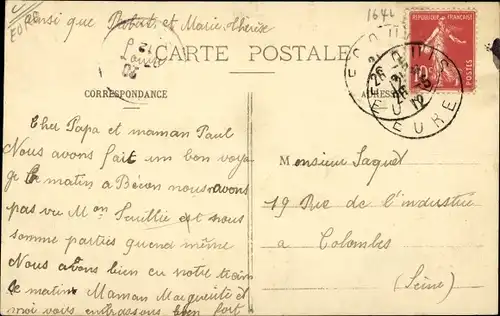 ainsi que Robert et Marie Thérèse
CARTE POSTALE
CORRESPONDANCE
RÉPUBLIQUE FRANÇAISE
10c
POSTES
EURE
Cher Papa et maman Paul
Nous avons fait un bon voya
ge le matin a Bécon nous avons
pas vu Mon Souillié est nous
somme parties quend même
Nous avons bien eu notre train
le matin Maman Marguerite et
moi vous entrassons bien fort
Monsieur Saquet
19 Rue de l'industrie
a Colombes
(Seine)